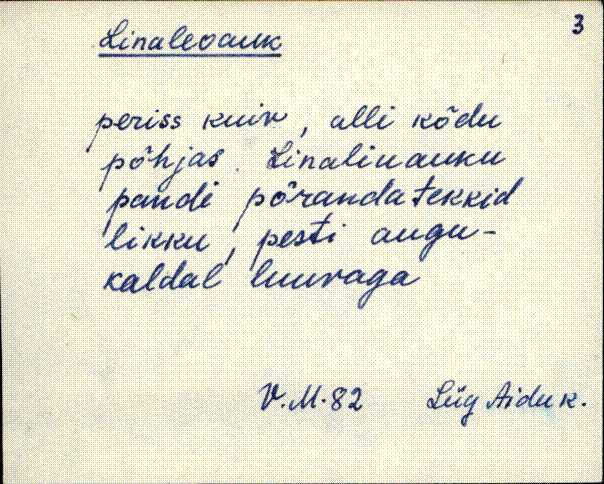 3
Linaleoauk
periss kuiv, alli kõdu
põhjas. Linaliuauku
pandi põrandatekkid
likku, pesti augu-
kaldal luuvaga
V.M.82 Lüg Aidu k.